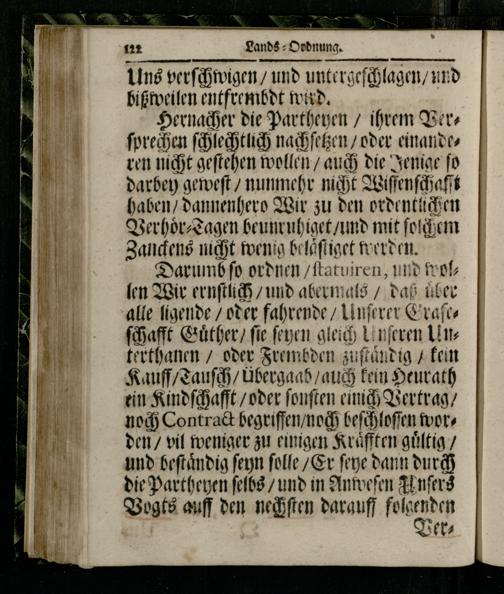 122 Lands-Ordnung.
Uns verschwigen / und untergeschlagen / und
bißweilen entfrembdt wird.
Hernacher die Partheyen / ihrem Ver-
sprechen schlechtlich nachsetzen / oder einande-
ren nicht gestehen wollen / auch die Jenige so
darbey gewest / nunmehr nicht Wissenschafft
haben / dannenhero Wir zu den ordentlichen
Verhör-Tagen beunruhiget / und mit solchem
Zanckens nicht wenig belästiget werden.
Darumb so ordnen / statuiren, und wol-
len Wir ernstlich / und abermals / daß über
alle ligende / oder fahrende / Unserer Grafe-
schafft Güther / sie seyen gleich Unseren Un-
terthanen / oder Frembden zuständig / kein
Kauff / Tausch / Übergaab / auch kein Heurath
ein Kindschafft / oder sonsten einich Vertrag /
noch Contract begriffen / noch beschlossen wor-
den / vil weniger zu einigen Kräfften gültig /
und beständig seyn solle / Er seye dann durch
die Partheyen selbs / und in Anwesen Unsers
Vogts auff den nechsten darauff folgenden
Ver-